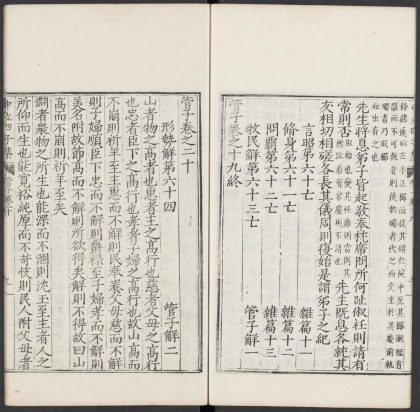 先生將息弟子皆起敬奉枕席問所何趾俶衽則請有
常則否
先生既息各就其
友相切相磋各長其儀周則復始是謂弟子之紀
言昭第六十亡 雜篇十一
脩身第六十一亡 雜篇十二
問霸第六十二亡 雜篇十三
牧民解第六十三亡 管子解一
管子卷之十九終
管子卷之二十
形勢解第六十四 管子解二
山者物之高者也惠者主之高行也慈者父母之高行
也忠者臣下之高行也孝者子婦之高行也故山高而
不崩則祈羊至主惠而不解則民奉養父母慈而不解
則子婦順臣下忠而不解則爵祿至子婦孝而不解則
美名附故節高而不解則所欲得矣解則不得故曰山
高而不崩則祈羊至矣
淵者衆物之所生也能深而不涸則沈玉至主者人之
所仰而生也能寬裕純厚而不苛忮則民人附父母者